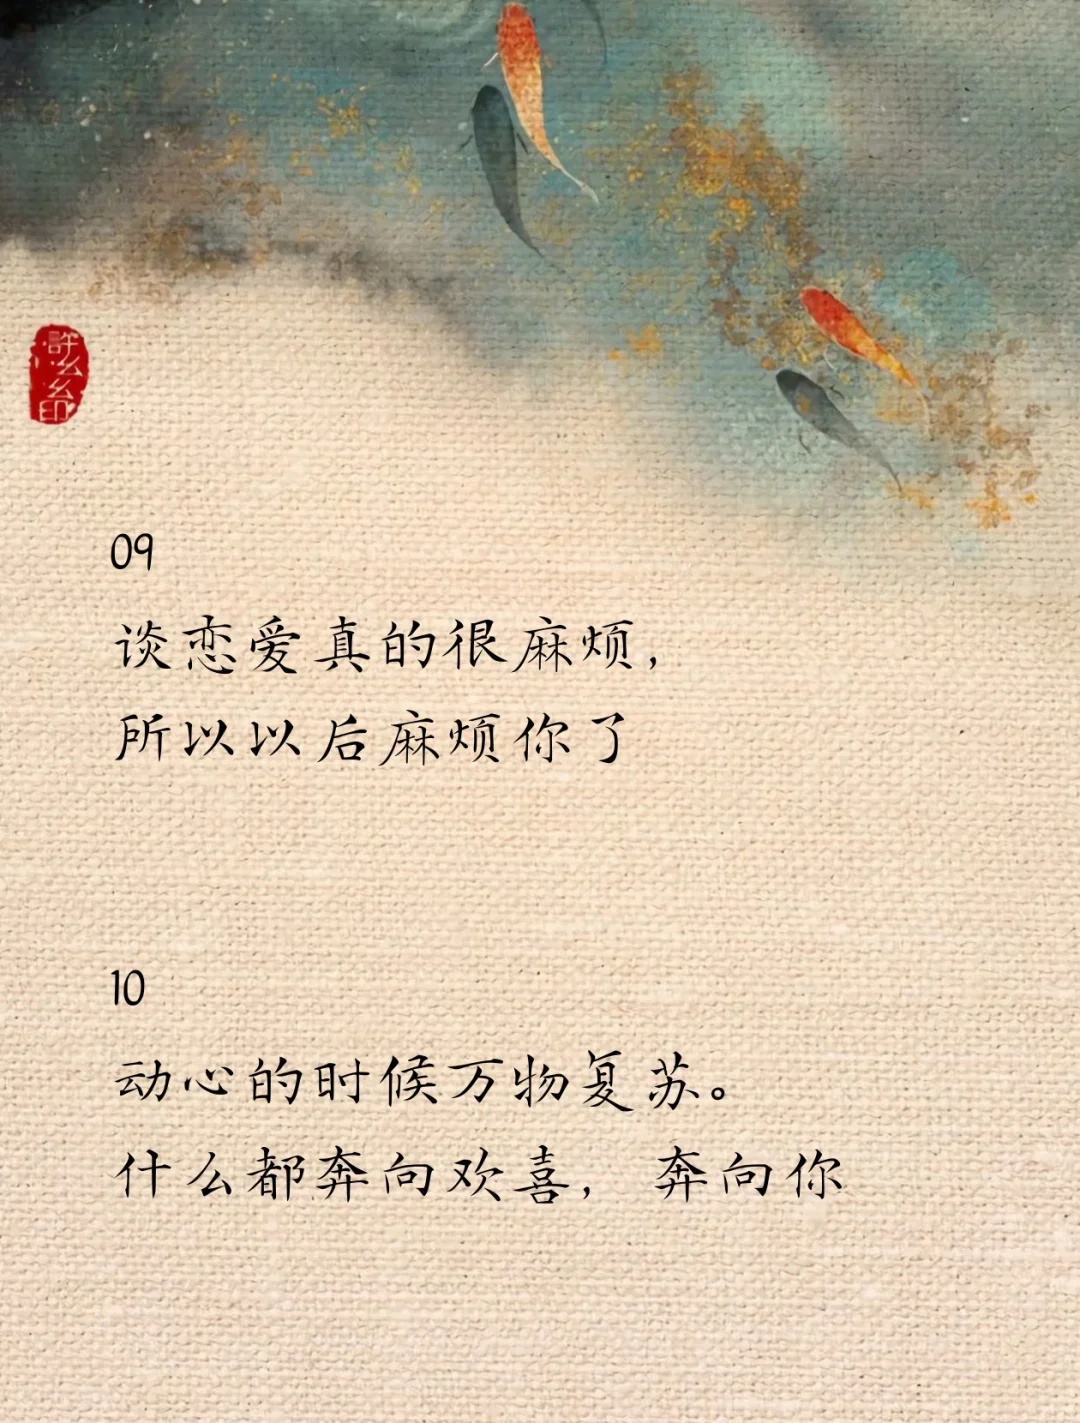 許么么印
09
谈恋爱真的很麻烦，
所以以后麻烦你了
10
动心的时候万物复苏。
什么都奔向欢喜，奔向你